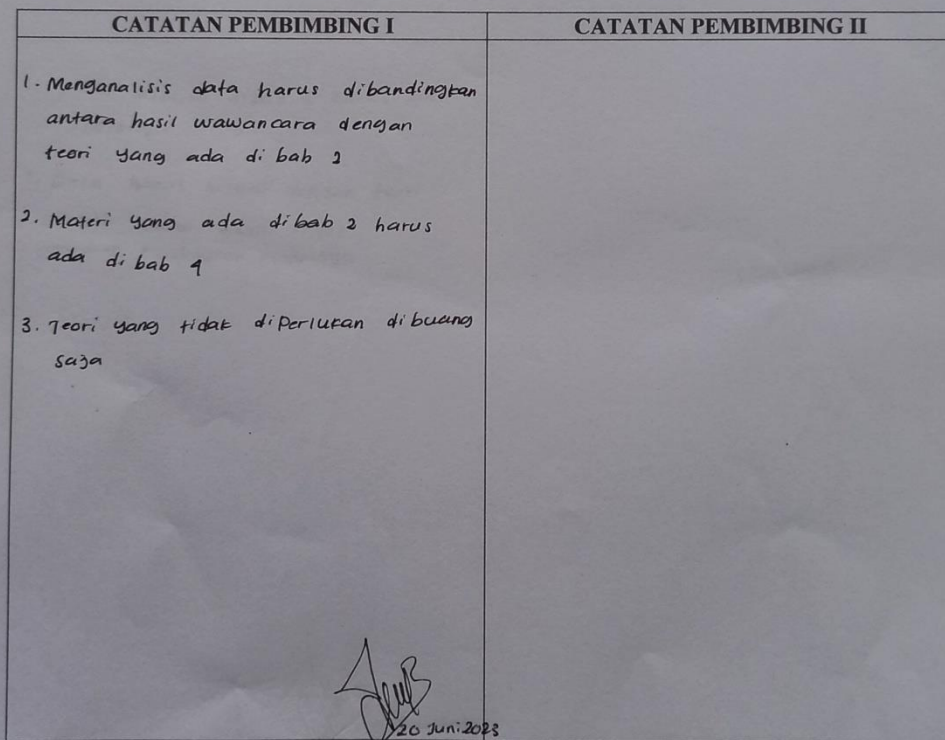 CATATAN PEMBIMBING I
CATATAN PEMBIMBING II
1. Menganalisis data harus dibandingkan
antara hasil wawancara dengan
teori yang ada di bab 2
2. Materi yang ada di bab 2 harus
ada di bab 4
3. Teori yang tidak diperlukan dibuang
saja
20 Juni 2023